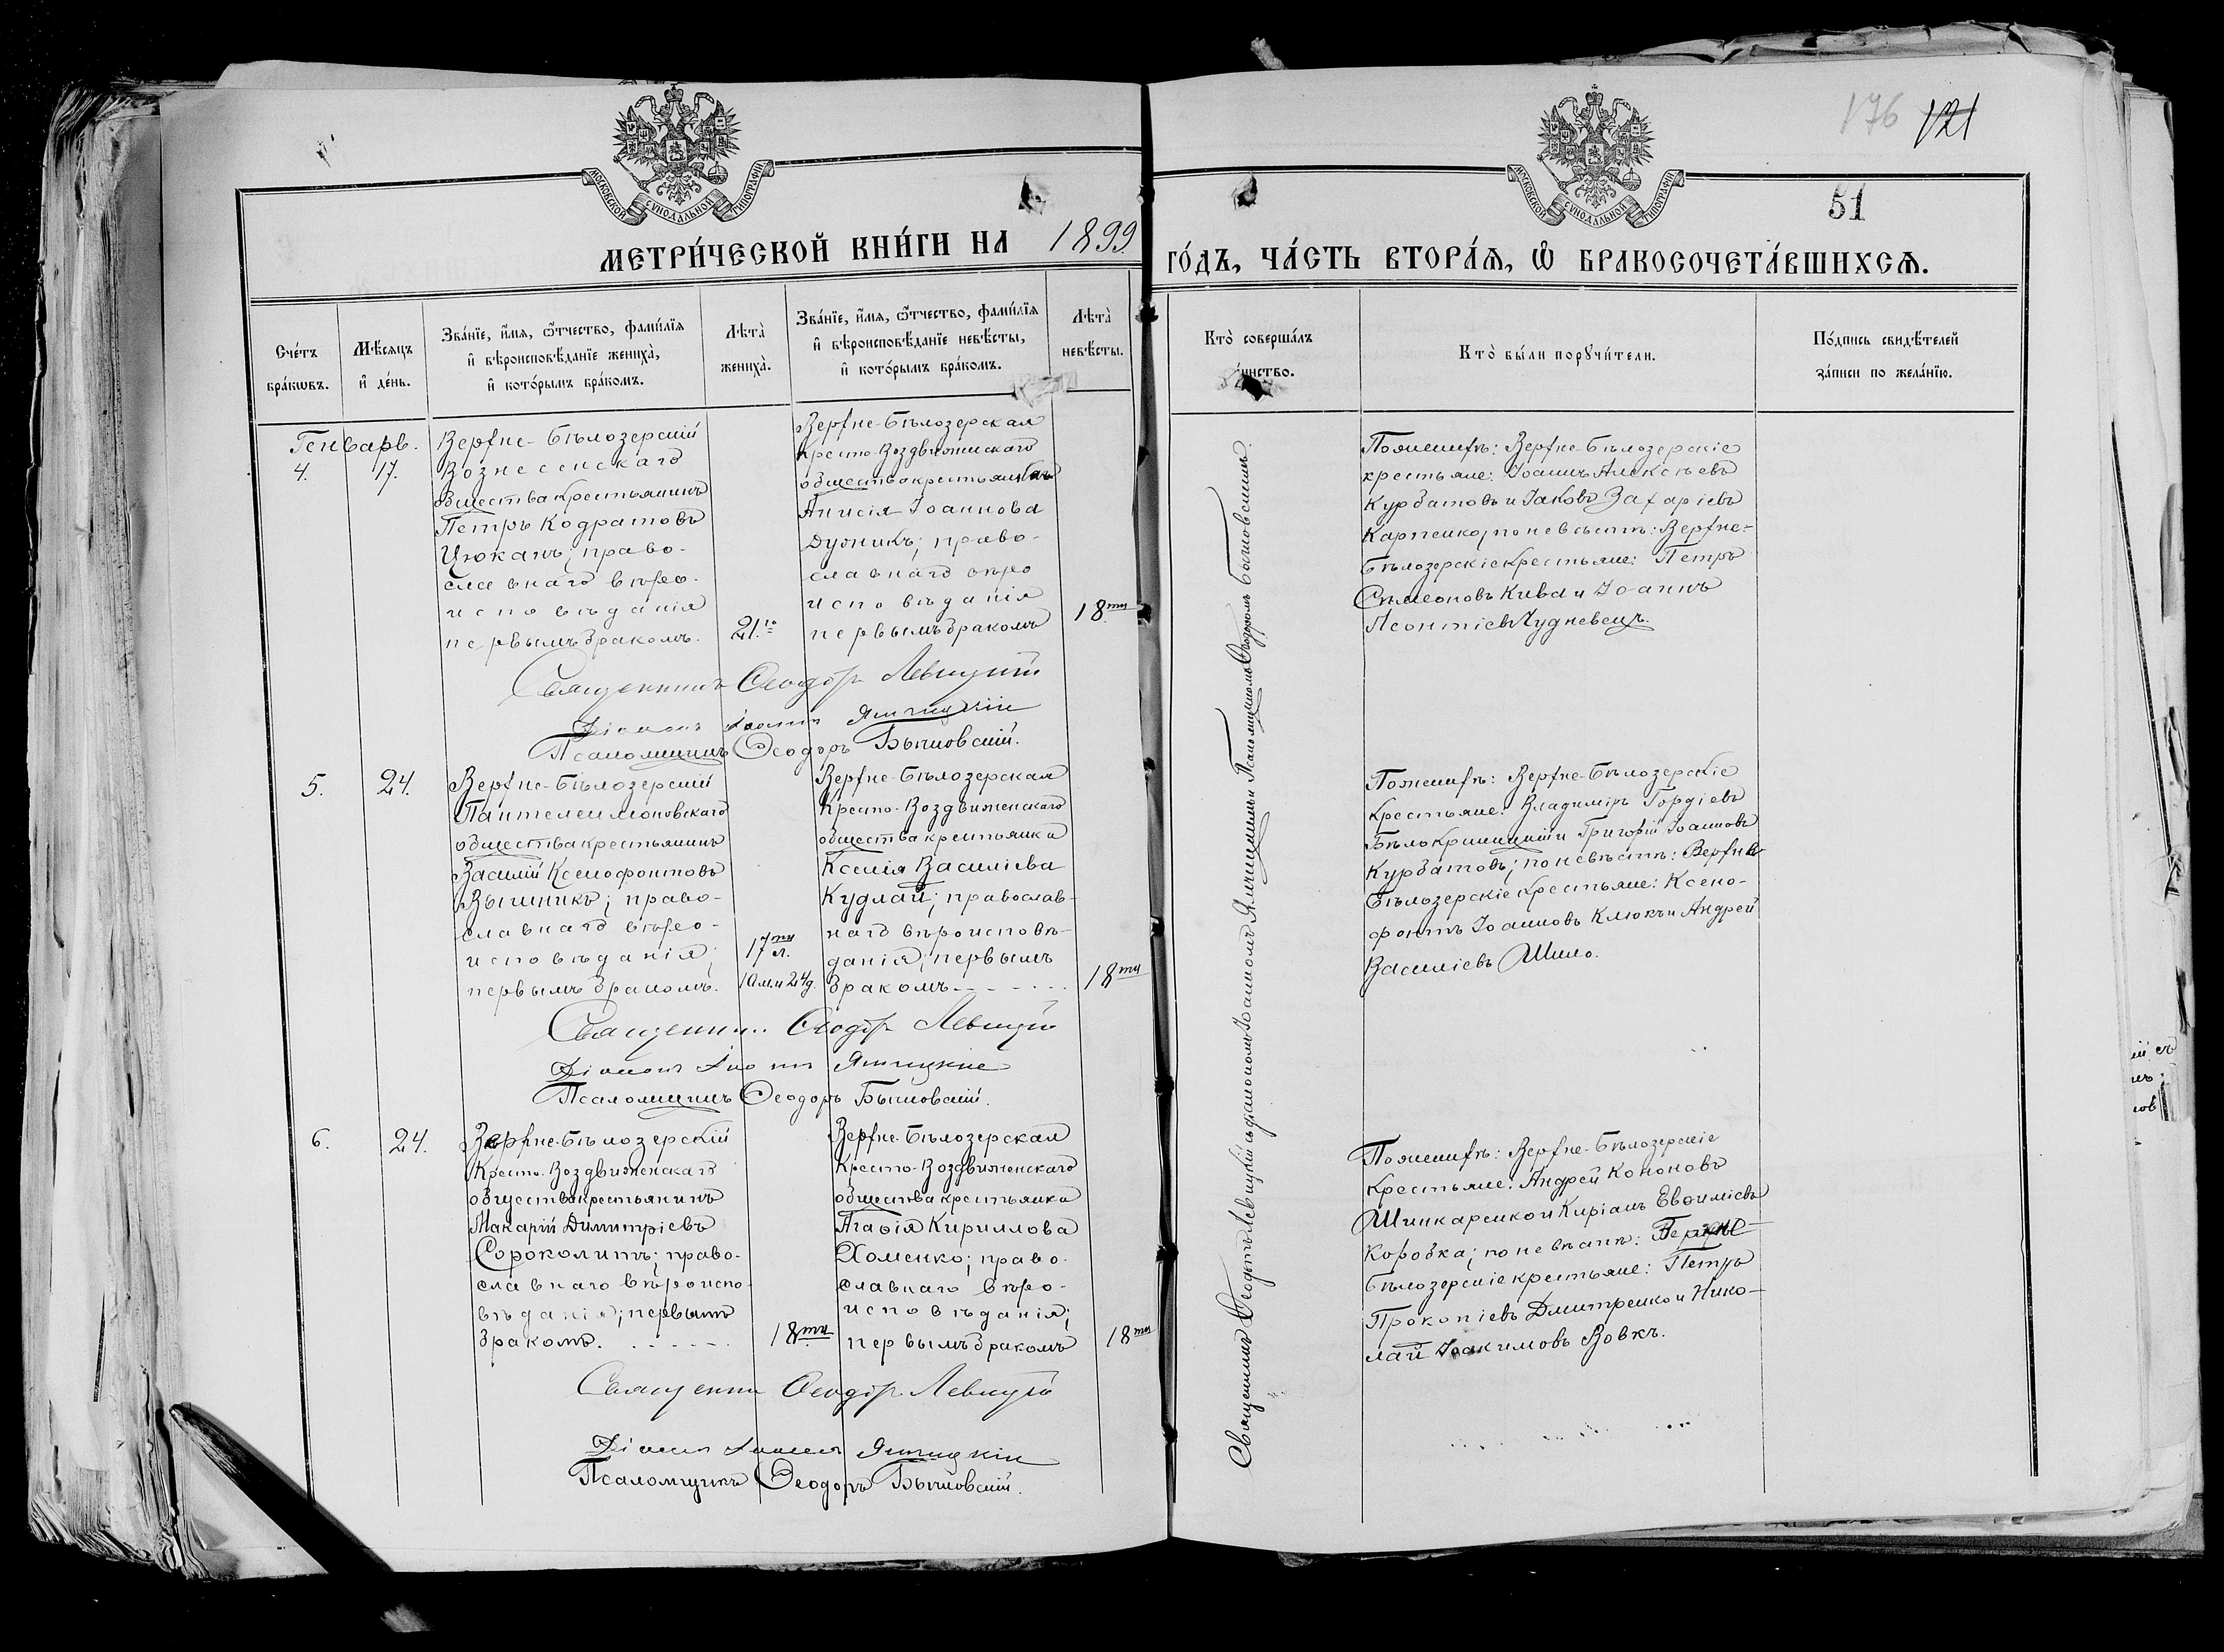 176 121
51
МОСКОВСКОЙ СѴНОДАЛЬНОЙ ТИПОГРАФІИ
МОСКОВСКОЙ СѴНОДАЛЬНОЙ ТИПОГРАФІИ
МЕТРИ́ЧЕСКОЙ КНИ́ГИ НА 1899
ГО́ДЪ, ЧА́СТЬ ВТОРА́Я, Ѽ БРАКОСОЧЕТА́ВШИХСѦ.
Сче́тъ
бра́кѡвъ.
Мѣ́сяцъ
и҆ де́нь.
Зва́нїе, и҆́мя, ѻ҆́тчество, фами́лїя
и҆ вѣроисповѣ́данїе жениха̀,
и҆ кото́рымъ бра́комъ.
Лѣта̀
жениха̀.
Зва́нїе, и҆́мя, ѻ҆́тчество, фами́лїя
и҆ вѣроисповѣ́данїе невѣ́сты,
и҆ кото́рымъ бра́комъ.
Лѣта̀
невѣ́сты.
Кто̀ соверша́лъ
таинство.
Кто̀ бы́ли порꙋчи́тели.
По́дпись свидѣ́телей
за́писи по жела́нїю.
Генварь.
4. 17.
Верхне-Бѣлозерскій
Вознесенскаго
общества крестьянинъ
Петръ Кодратовъ
Цюканъ; право-
славнаго вѣро-
исповѣданія
первымъ бракомъ.
21.го
Верхне-Бѣлозерская
Кресто-Воздвиженскаго
общества крестьянка
Анисія Іоаннова
Дужникъ; право-
славнаго вѣро
исповѣданія
первымъ бракомъ
18ти
Поженихѣ: Верхне-Бѣлозерскіе
крестьяне: Іоаннъ Алексѣевъ
Курбатовъ и Іаковъ Захаріевъ
Карпенко; по невѣстѣ: Верхне-
Бѣлозерскіе крестьяне: Петръ
Симеоновъ Кива и Іоаннъ
Леонтіевъ Чудневецъ.
Священникъ Ѳеодоръ Левицкій
Діаконъ Іоаннъ Ямчицкій
Псаломщикъ Ѳеодоръ Бычковскій.
5. 24.
Верхне-Бѣлозерскій
Пантелеимоновскаго
общества крестьянинъ
Василій Ксенофонтовъ
Вышникъ; право-
славнаго вѣро-
исповѣданія;
первымъ бракомъ.
17ти л.
10 м. и 24 д.
Верхне-Бѣлозерская
Кресто-Воздвиженскаго
общества крестьянка
Ксенія Василіева
Кудлай; православ-
наго вѣроисповѣ-
данія; первымъ
бракомъ
18ти
Поженихѣ: Верхне-Бѣлозерскіе
крестьяне: Владиміръ Гордіевъ
Бѣлокриницкій и Григорій Іоанновъ
Курбатовъ; по невѣстѣ: Верхне
Бѣлозерскіе крестьяне: Ксено-
фонтъ Іоанновъ Клюкъ и Андрей
Василіевъ Шило.
Священникъ Ѳеодоръ Левицкій
Діаконъ Іоаннъ Ямчицкій
Псаломщикъ Ѳеодоръ Бычковскій.
6. 24.
Верхне-Бѣлозерскій
Кресто-Воздвиженскаго
общества крестьянинъ
Макарій Димитріевъ
Сороколитъ; право-
славнаго вѣроиспо-
вѣданія; первымъ
бракомъ.
18ти
Верхне-Бѣлозерская
Кресто-Воздвиженскаго
общества крестьянка
Агаѳія Кириллова
Хоменко; право-
славнаго вѣро-
исповѣданія;
первымъ бракомъ
18ти
Поженихѣ: Верхне-Бѣлозерскіе
крестьяне: Андрей Кононовъ
Шинкаренко и Киріанъ Евѳиміевъ
Коробка; по невѣстѣ: Верхне-
Бѣлозерскіе крестьяне: Петръ
Прокопіевъ Дмитренко и Нико-
лай Іоакимовъ Вовкъ.
Священникъ Ѳеодоръ Левицкій
Діаконъ Іоаннъ Ямчицкій
Псаломщикъ Ѳеодоръ Бычковскій.
Священникъ Ѳеодоръ Левицкій съ діакономъ Іоанномъ Ямчицкимъ и Псаломщикомъ Ѳеодоромъ Бычковскимъ.